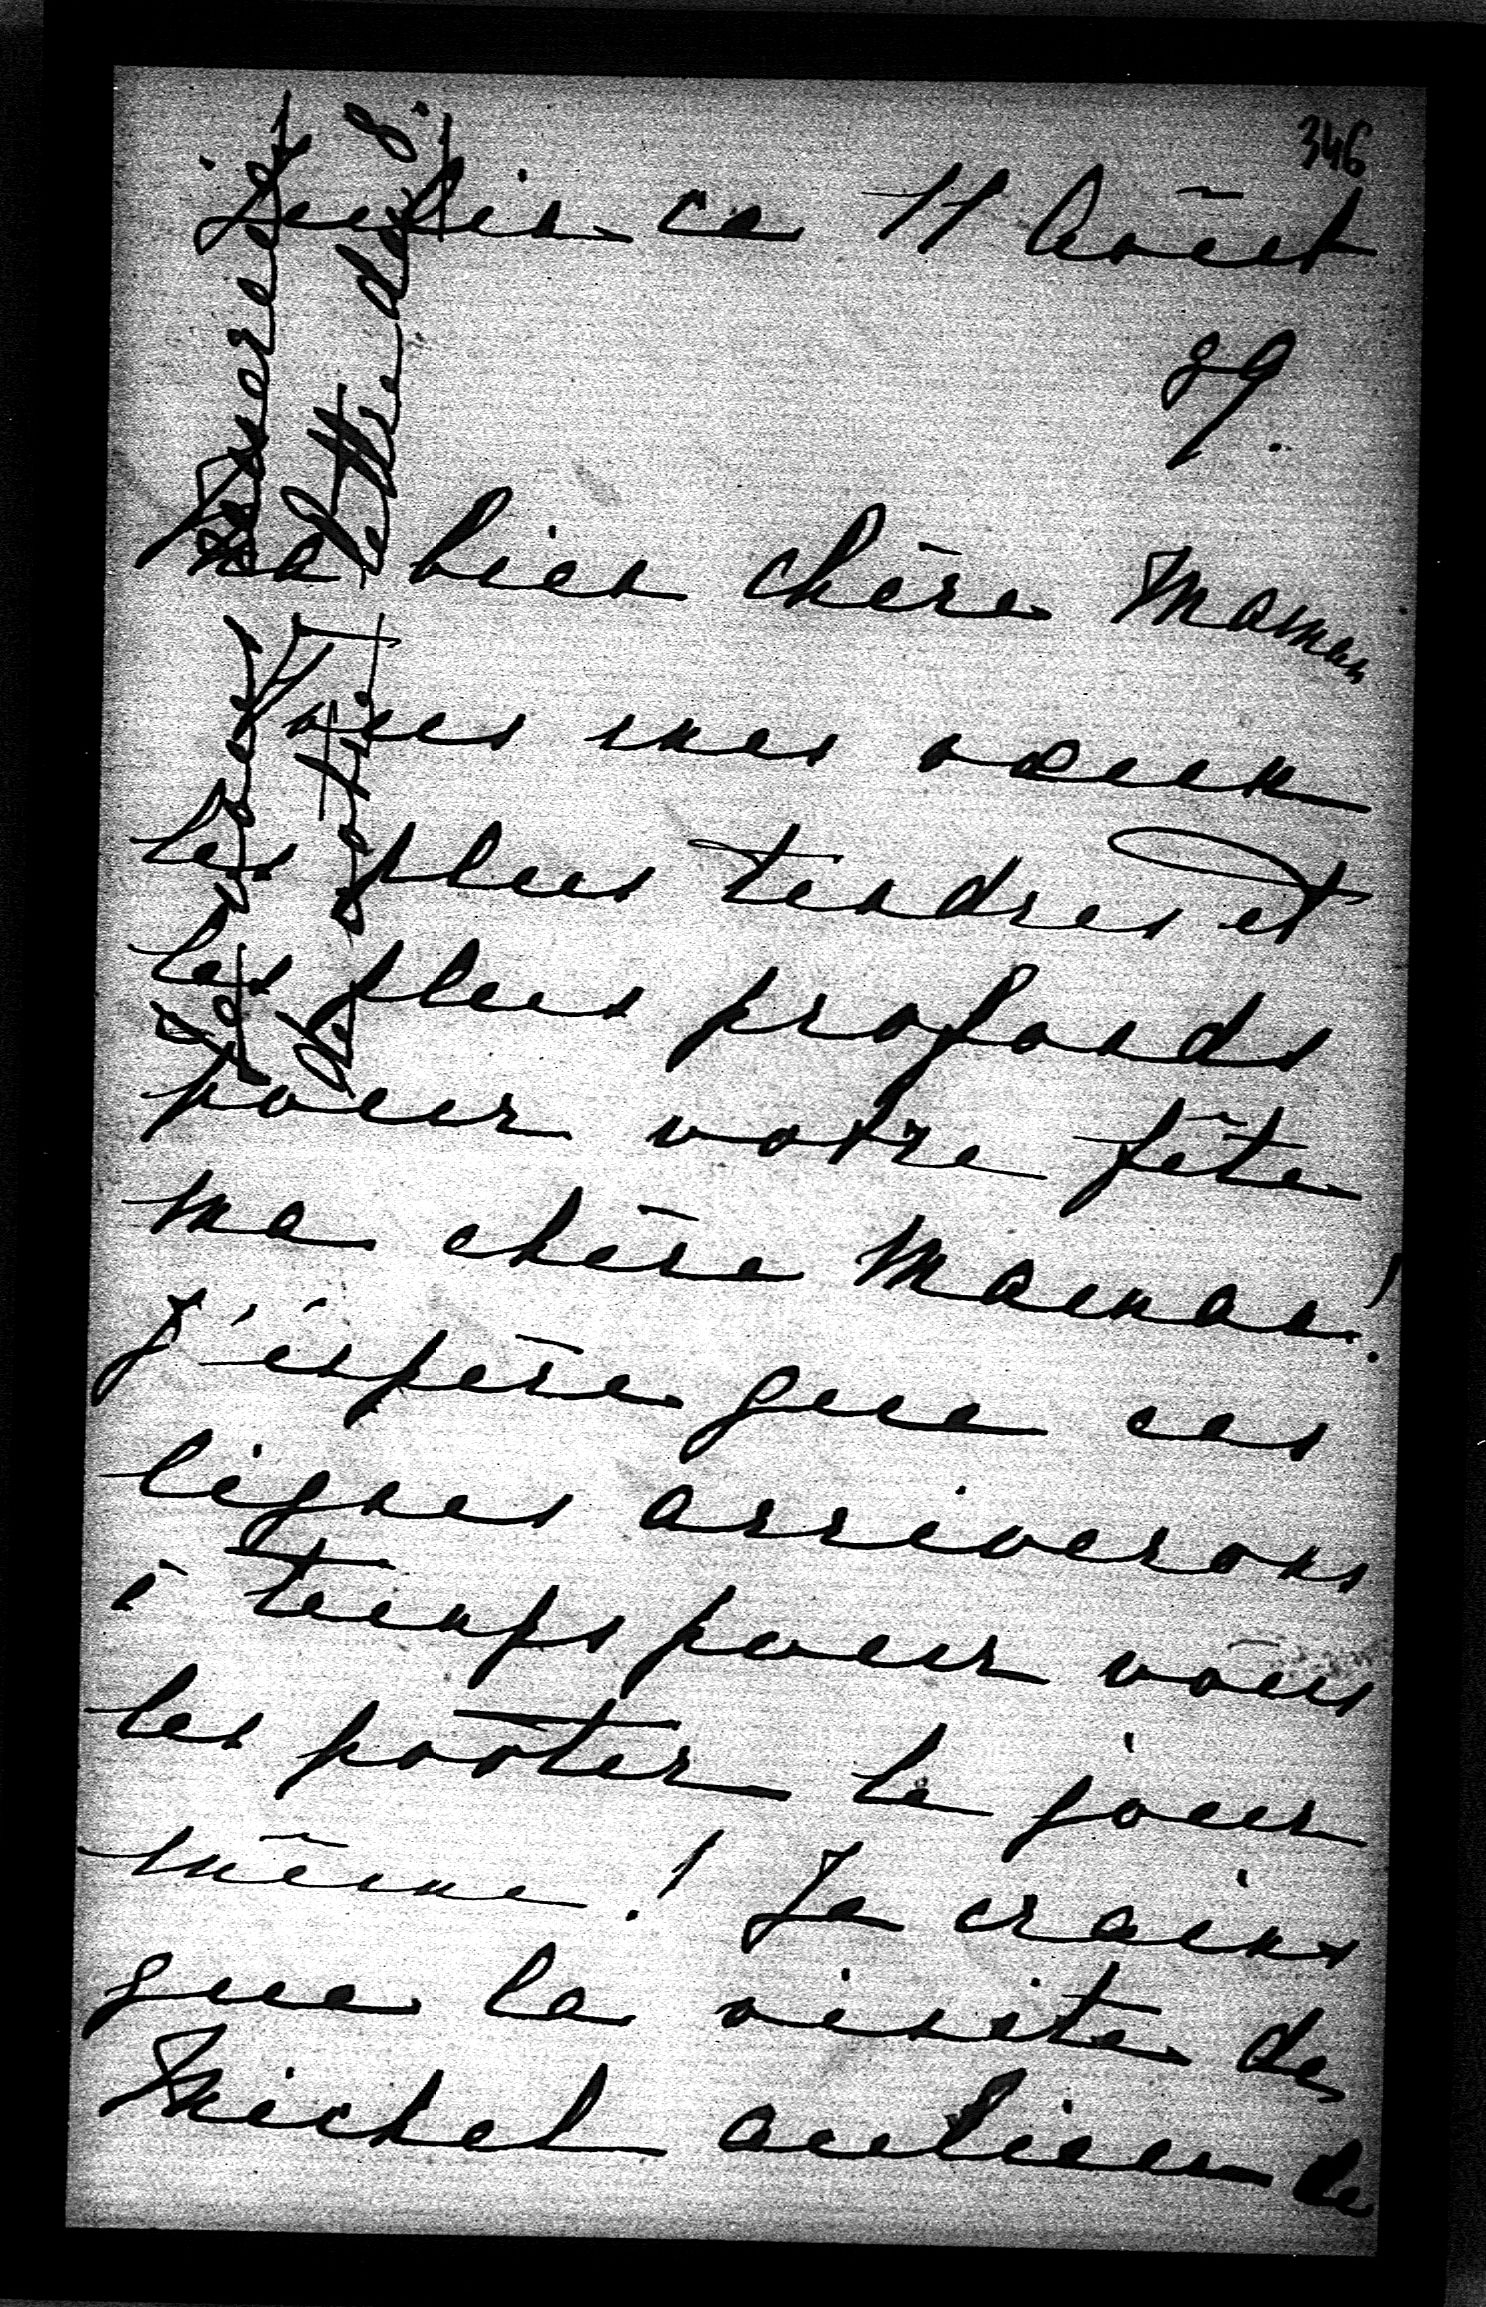 346
julin ce 11 Août
89.
Ma bien chère Maman
Tous mes vœux
les plus tendres et
les plus profonds
pour votre fête
ma chère Maman!
J'espère que ces
lignes arriverons
à temps pour vous
les porter le jour
même! Je crains
que la visite de
Michel au lieu de